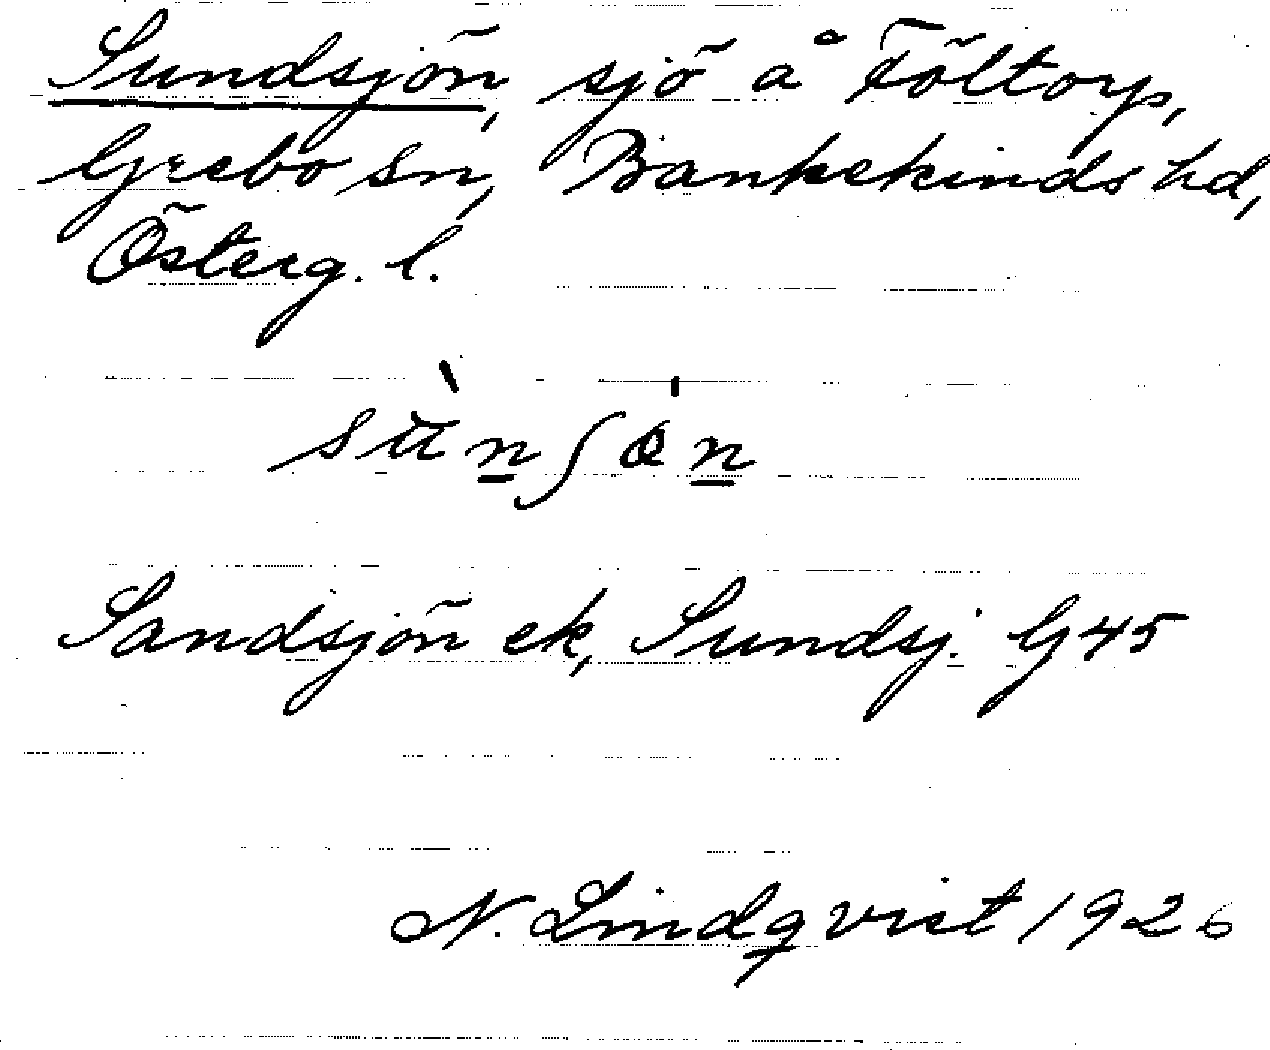 Sundsjön, sjö å Föltorp,
Grebo sn, Bankekinds hd,
Österg. l.
sùnʃön
Sandsjön ek, Sundsj. G45
N. Lindqvist 1926